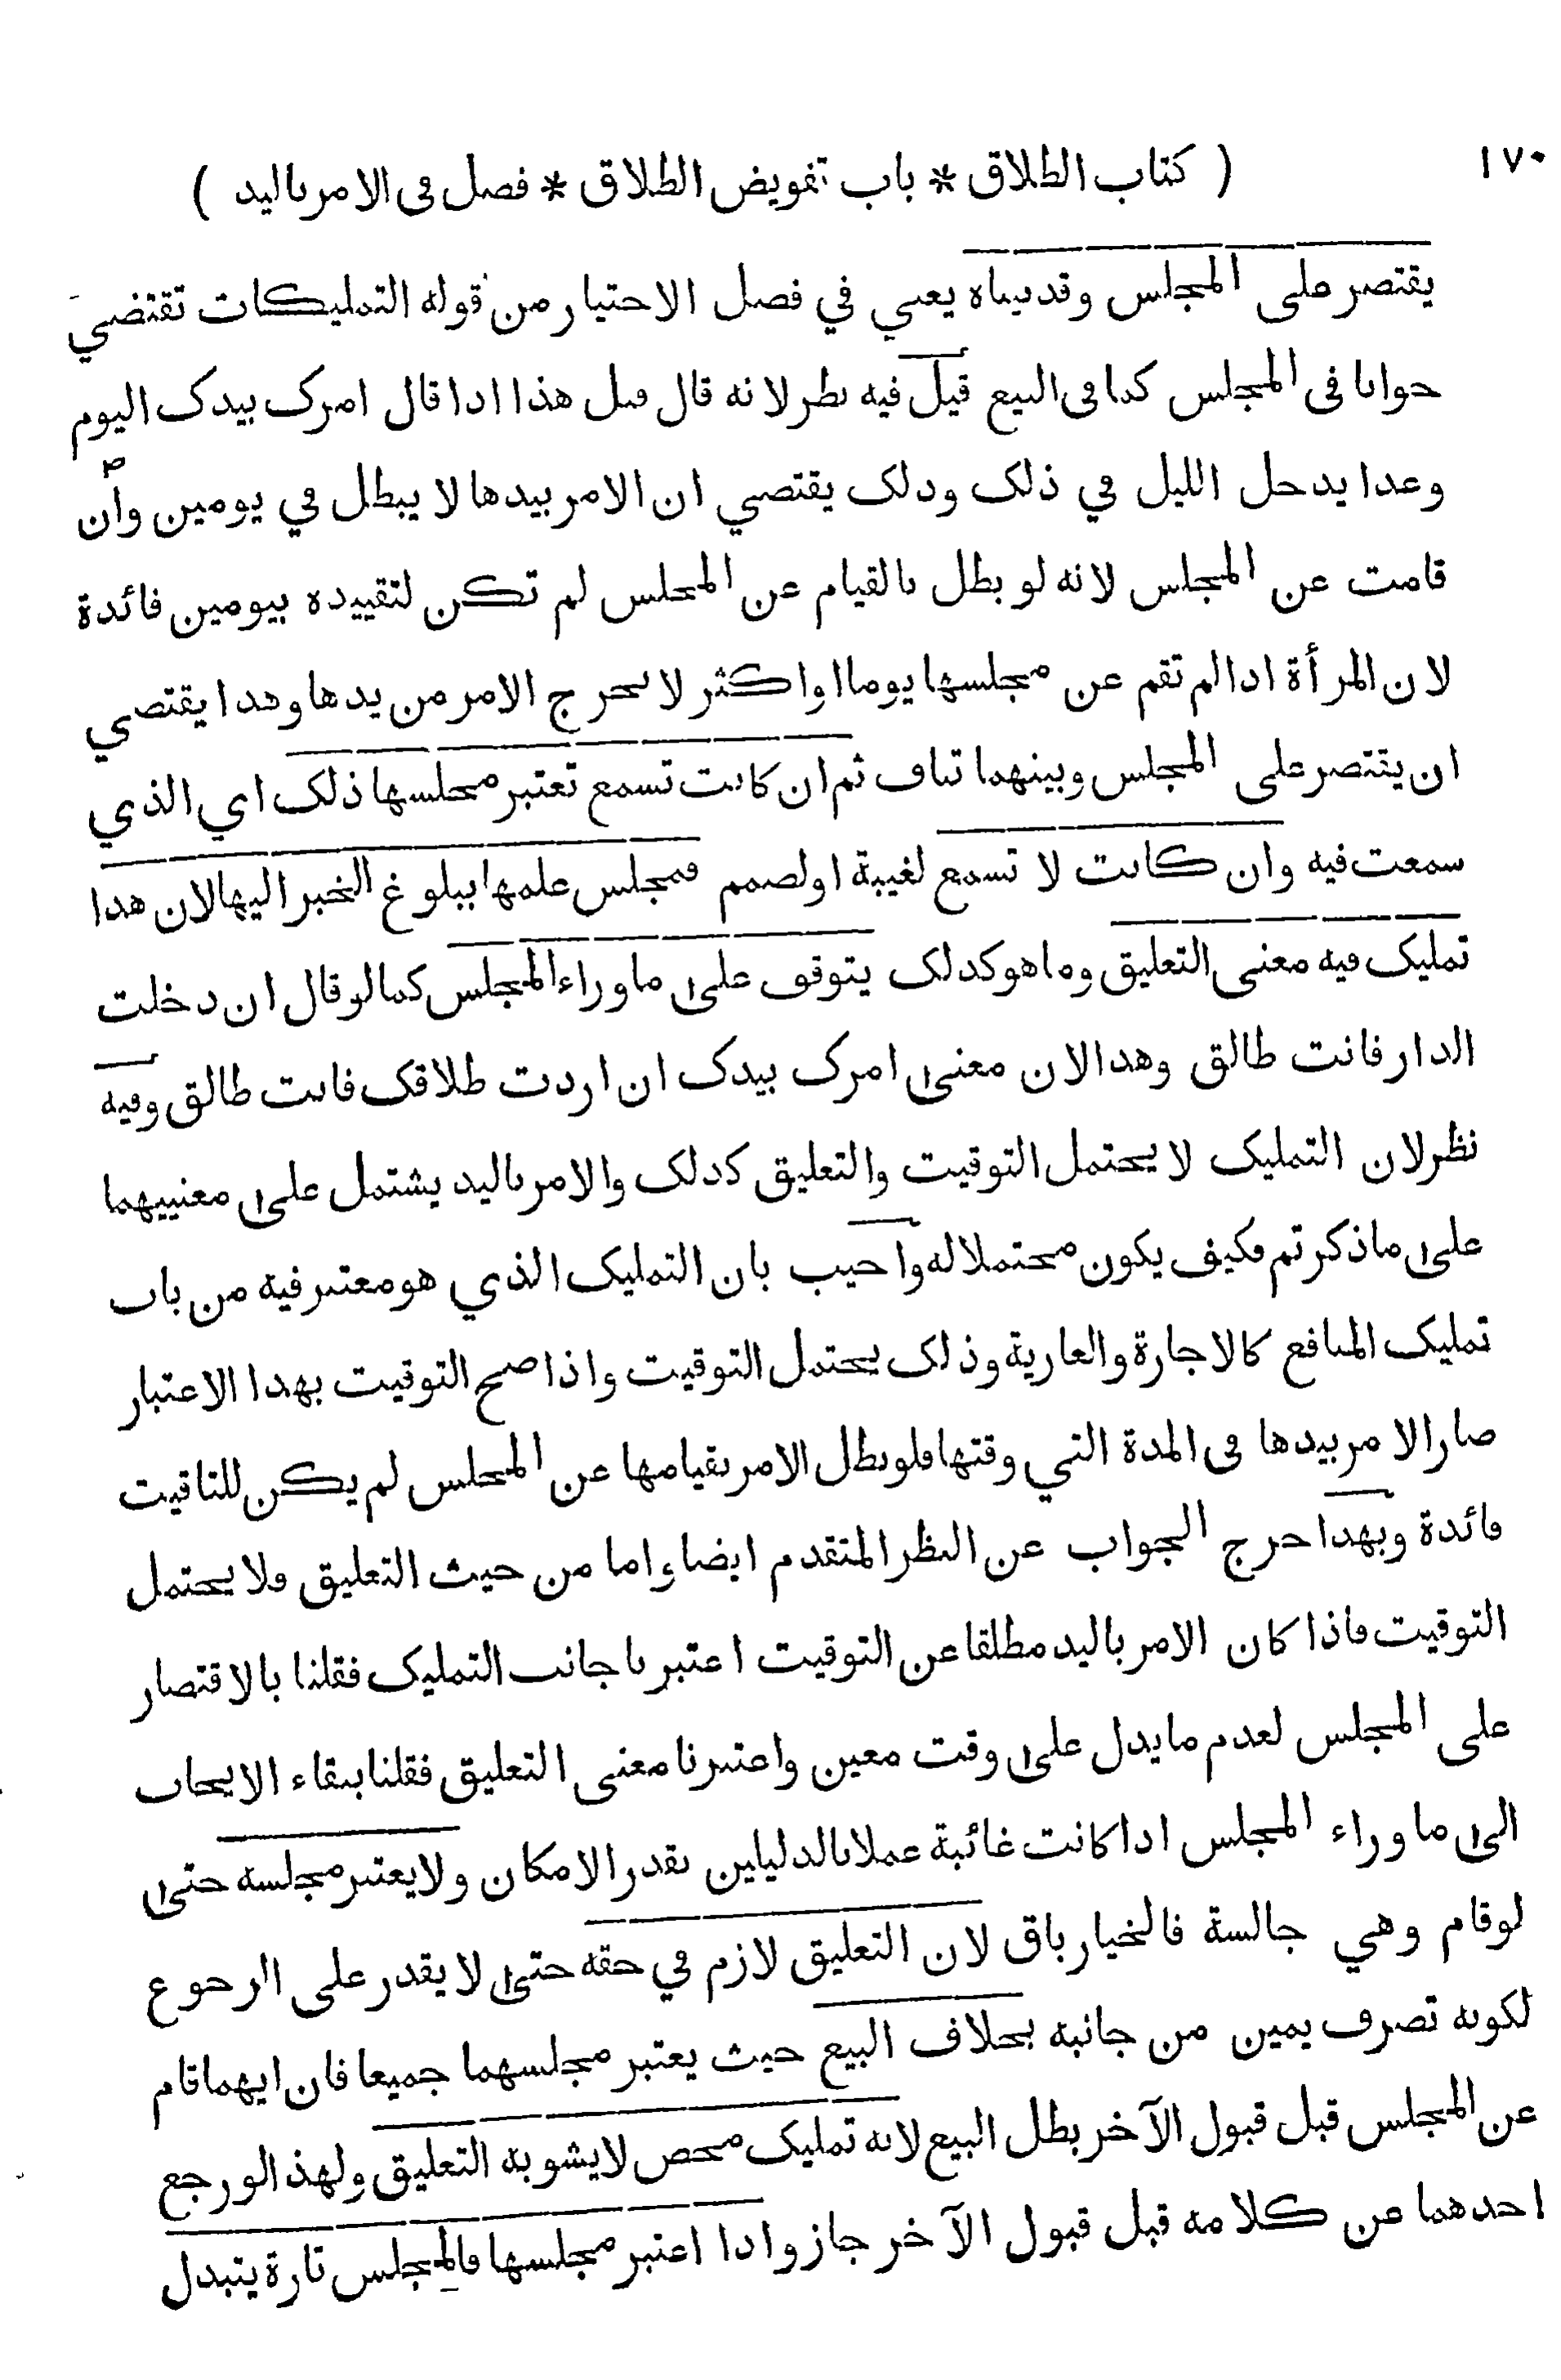 ١٧٠
( كتاب الطلاق * باب تفويض الطلاق * فصل في الامر باليد )
يقتصر على المجلس وقد بيناه يعني في فصل الاختيار من قوله التمليكات تقتضي
جوابا في المجلس كما في البيع قيل فيه نظر لانه قال قبل هذا اذا قال امرك بيدك اليوم
وغدا يدخل الليل في ذلك وذلك يقتضي ان الامر بيدها لا يبطل في يومين وان
قامت عن المجلس لانه لو بطل بالقيام عن المجلس لم تكن لتقييده بيومين فائدة
لان المرأة اذا لم تقم عن مجلسها يوما او اكثر لا يخرج الامر من يدها وهذا يقتضي
ان يقتصر على المجلس وبينهما تناف ثم ان كانت تسمع تعتبر مجلسها ذلك اي الذي
سمعت فيه وان كانت لا تسمع لغيبة او لصمم فمجلس علمها ببلوغ الخبر اليها لان هذا
تمليك فيه معنى التعليق وما هو كذلك يتوقف على ما وراء المجلس كما لو قال ان دخلت
الدار فانت طالق وهذا لان معنى امرك بيدك ان اردت طلاقك فانت طالق وفيه
نظر لان التمليك لا يحتمل التوقيت والتعليق كذلك والامر باليد يشتمل على معنييهما
على ما ذكرتم فكيف يكون محتملا له واجيب بان التمليك الذي هو معتبر فيه من باب
تمليك المنافع كالاجارة والعارية وذلك يحتمل التوقيت واذا صح التوقيت بهذا الاعتبار
صار الامر بيدها في المدة التي وقتها فلو بطل الامر بقيامها عن المجلس لم يكن للتاقيت
فائدة وبهذا خرج الجواب عن النظر المتقدم ايضا واما من حيث التعليق فلا يحتمل
التوقيت فاذا كان الامر باليد مطلقا عن التوقيت اعتبرنا جانب التمليك فقلنا بالاقتصار
على المجلس لعدم ما يدل على وقت معين واعتبرنا معنى التعليق فقلنا ببقاء الايجاب
الى ما وراء المجلس اذا كانت غائبة عملا بالدليلين بقدر الامكان ولا يعتبر مجلسه حتى
لو قام وهي جالسة فالخيار باق لان التعليق لازم في حقه حتى لا يقدر على الرجوع
لكونه تصرف يمين من جانبه بخلاف البيع حيث يعتبر مجلسهما جميعا فان ايهما قام
عن المجلس قبل قبول الآخر بطل البيع لانه تمليك محض لا يشوبه التعليق ولهذا لو رجع
احدهما عن كلامه قبل قبول الآخر جاز واذا اعتبر مجلسها فالمجلس تارة يتبدل